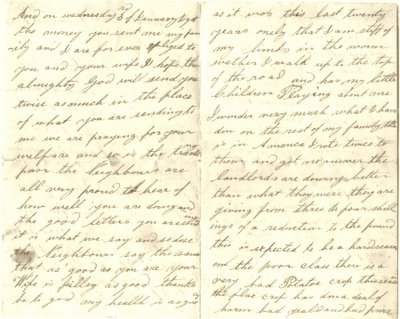 And on wednesday 3rd of January I got
the money you sent me my
and I are for ever obliged to
you and your wife I hope the
almighty God will send you
twise as much in the place
of what you are sending to
me we are praying for your
welfare and so is the
poor the Neighbours are
all very proud to hear of
how well you are
the good letters you
it is what we say and so dose
the Neighbours say the same
that as good as you are your
Wife is fulley as good thanks
be to god my health is as good
as it was this last twenty
years onely that I am stiff of
my limbs in the warm
wether I walk up to the top
of the road and has my little
Children Playing about me
I wonder very much what I have
don on the rest of my family, that
is in America I rote twice to
them and got no answer the
landlords are dowing better
than what they were they are
giving from three to four shill
ings of a reduction to the pound
this is expected to be a hard season
on the poor class there is a
very bad Potatoe crop this season
the plat crop has don a deal of
harm bad yeald and bad price